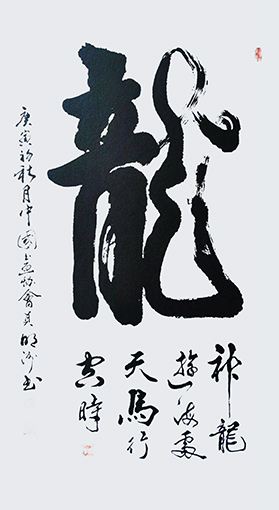 龍
神龍
遊海處
天馬行
空時
庚寅初秋月中國書画協會員書